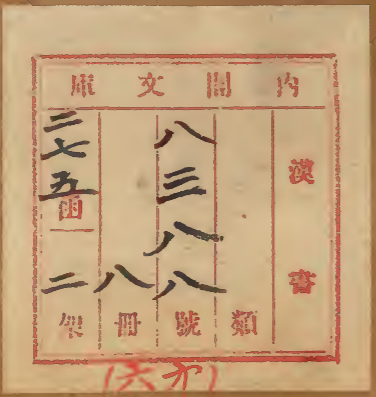 內閣文庫
漢書
類
八三八八號
八冊
二七五函
二架
(六)